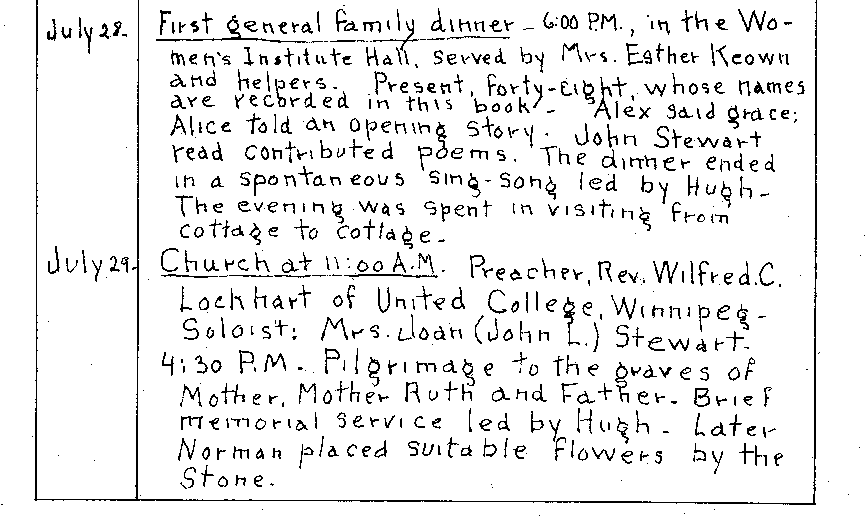 July 28. First general family dinner - 6:00 P.M., in the Wo-
men's Institute Hall, served by Mrs. Esther Keown
and helpers. Present, forty-eight, whose names
are recorded in this book - Alex said grace;
Alice told an opening story. John Stewart
read contributed poems. The dinner ended
in a spontaneous sing-song led by Hugh -
The evening was spent in visiting from
cottage to cottage -
July 29 - Church at 11:00 A.M. Preacher, Rev. Wilfred.C.
Lockhart of United College, Winnipeg -
Soloist: Mrs. Joan (John L.) Stewart.
4:30 P.M. - Pilgrimage to the graves of
Mother, Mother Ruth and Father - Brief
memorial service led by Hugh - Later
Norman placed suitable flowers by the
stone.